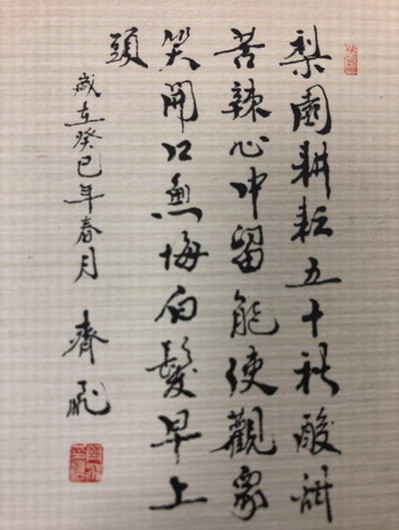 梨園耕耘五十秋酸甜
苦辣心中留能使觀眾
笑開口無悔白髮早上
頭
歲在癸巳年春月
齊飛